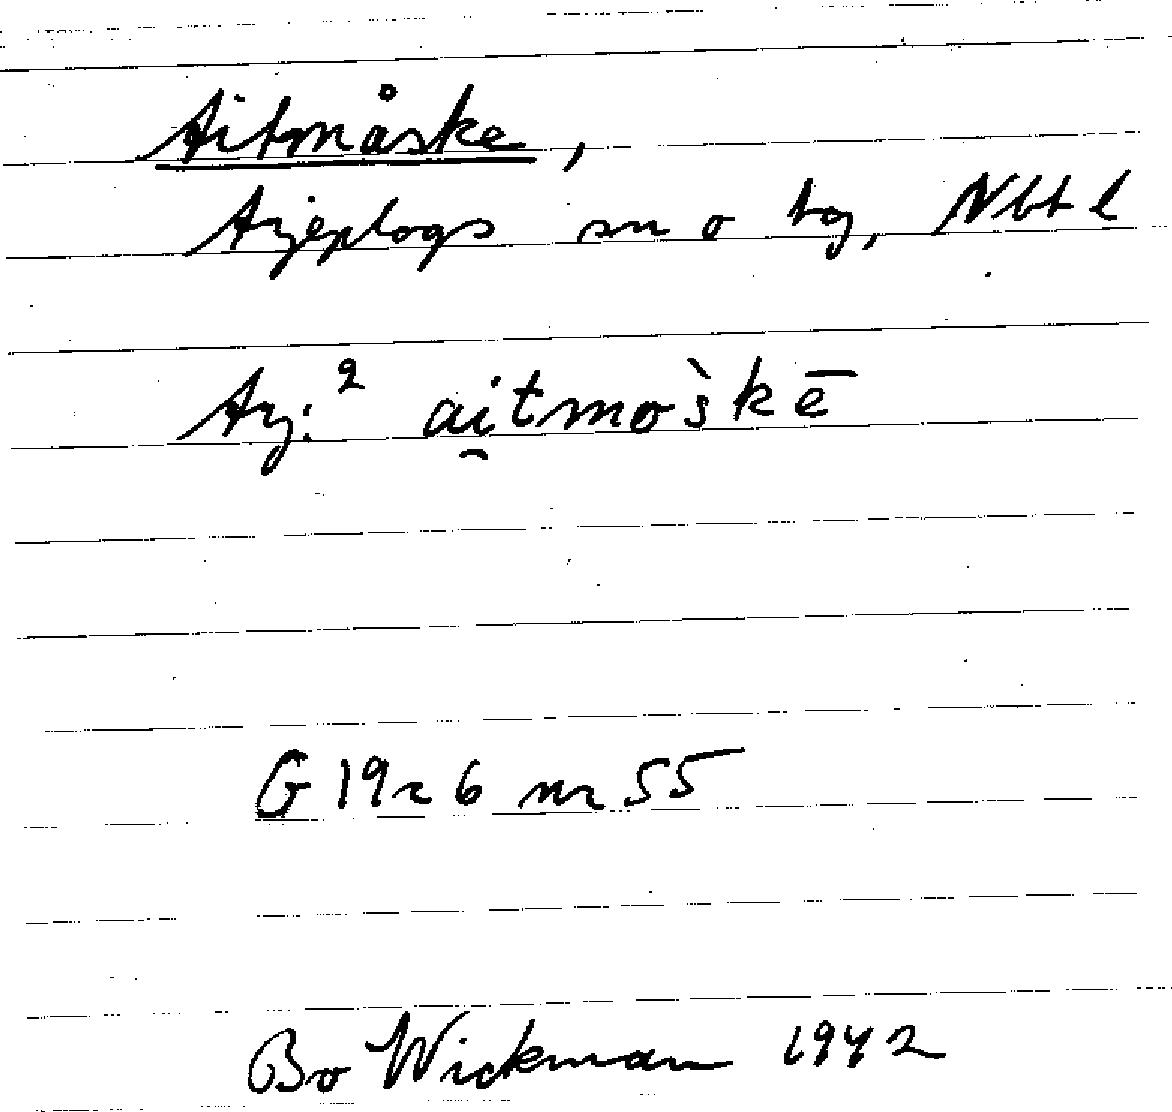 Aitmåske,
Arjeplogs sn o tg, Nbt l
Arj:² ai̯tmos̀kē
G 1926 nr 55
Bo Wickman 1942